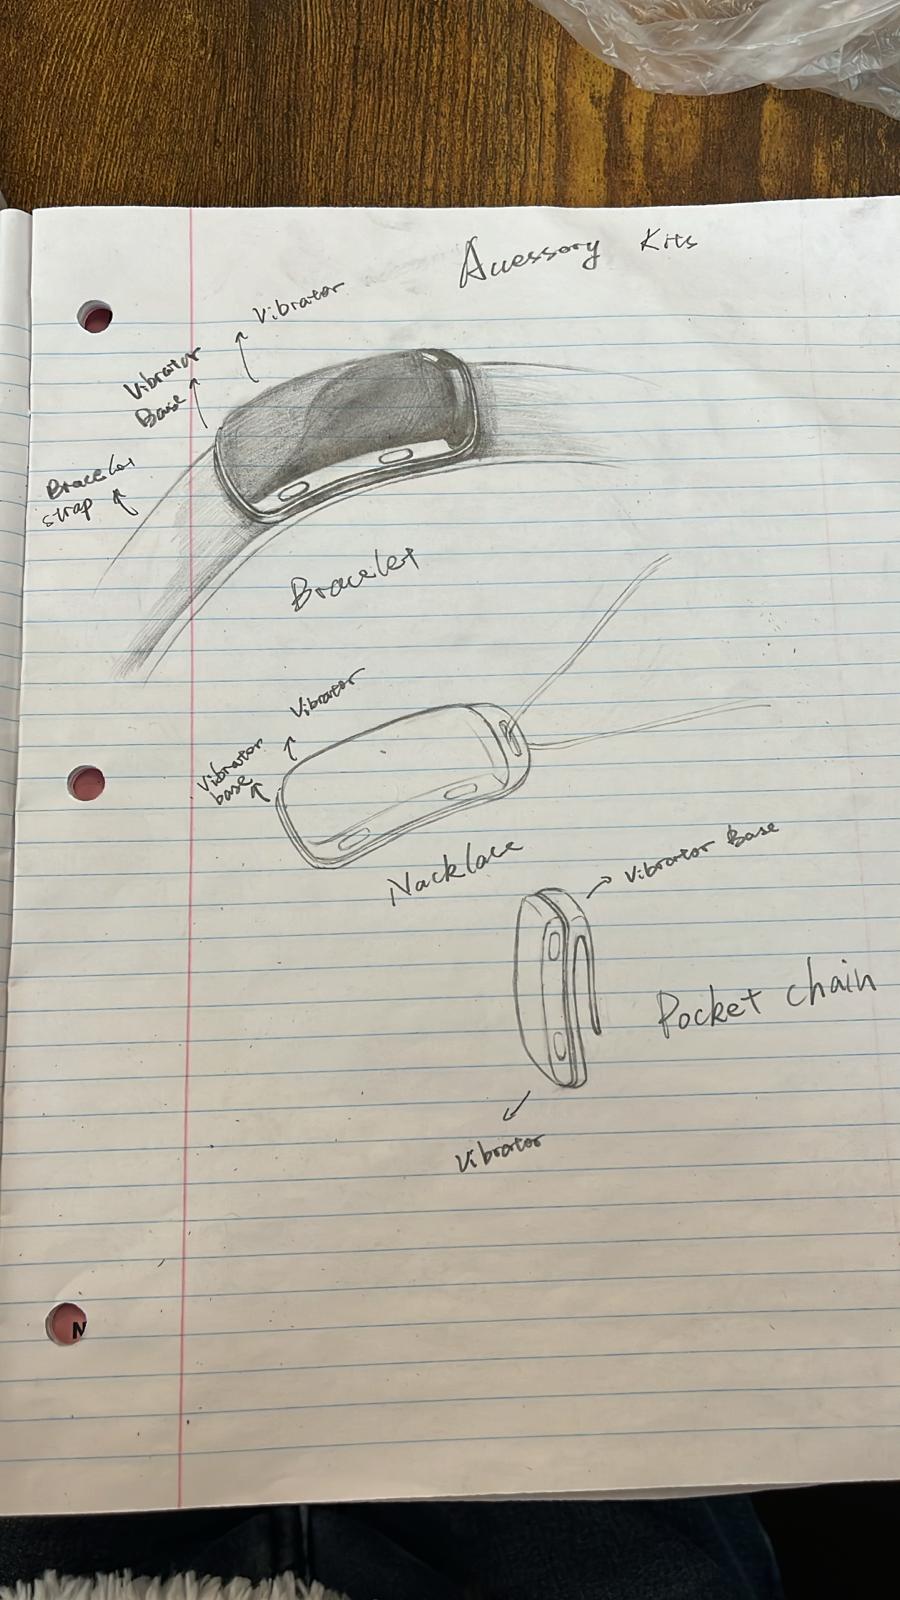 Accessory Kits
Vibrator
Vibrator
Base
Bracelet
strap
Bracelet
Vibrator
Vibrator
base
Nacklace
Vibrator Base
Pocket chain
Vibrator
N